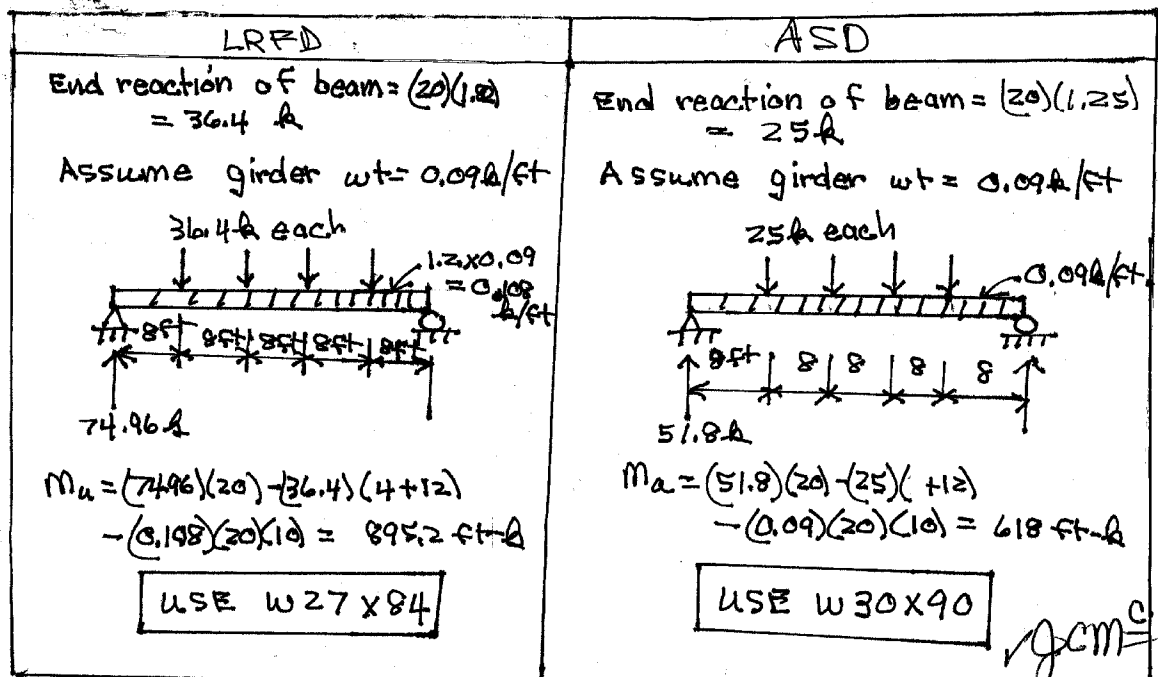 LRFD
End reaction of beam = (20)(1.82)
= 36.4 k
Assume girder wt = 0.09k/ft
36.4k each
1.2x0.09
= 0.108
k/ft
8ft 8ft 8ft 8ft 8ft
74.96k
Mu = (74.96)(20) - (36.4)(4+12)
- (0.108)(20)(10) = 895.2 ft-k
USE W27x84
ASD
End reaction of beam = (20)(1.25)
= 25k
Assume girder wt = 0.09k/ft
25k each
0.09k/ft
8ft 8 8 8 8
51.8k
Ma = (51.8)(20) - (25)( +12)
- (0.09)(20)(10) = 618 ft-k
USE W30x90